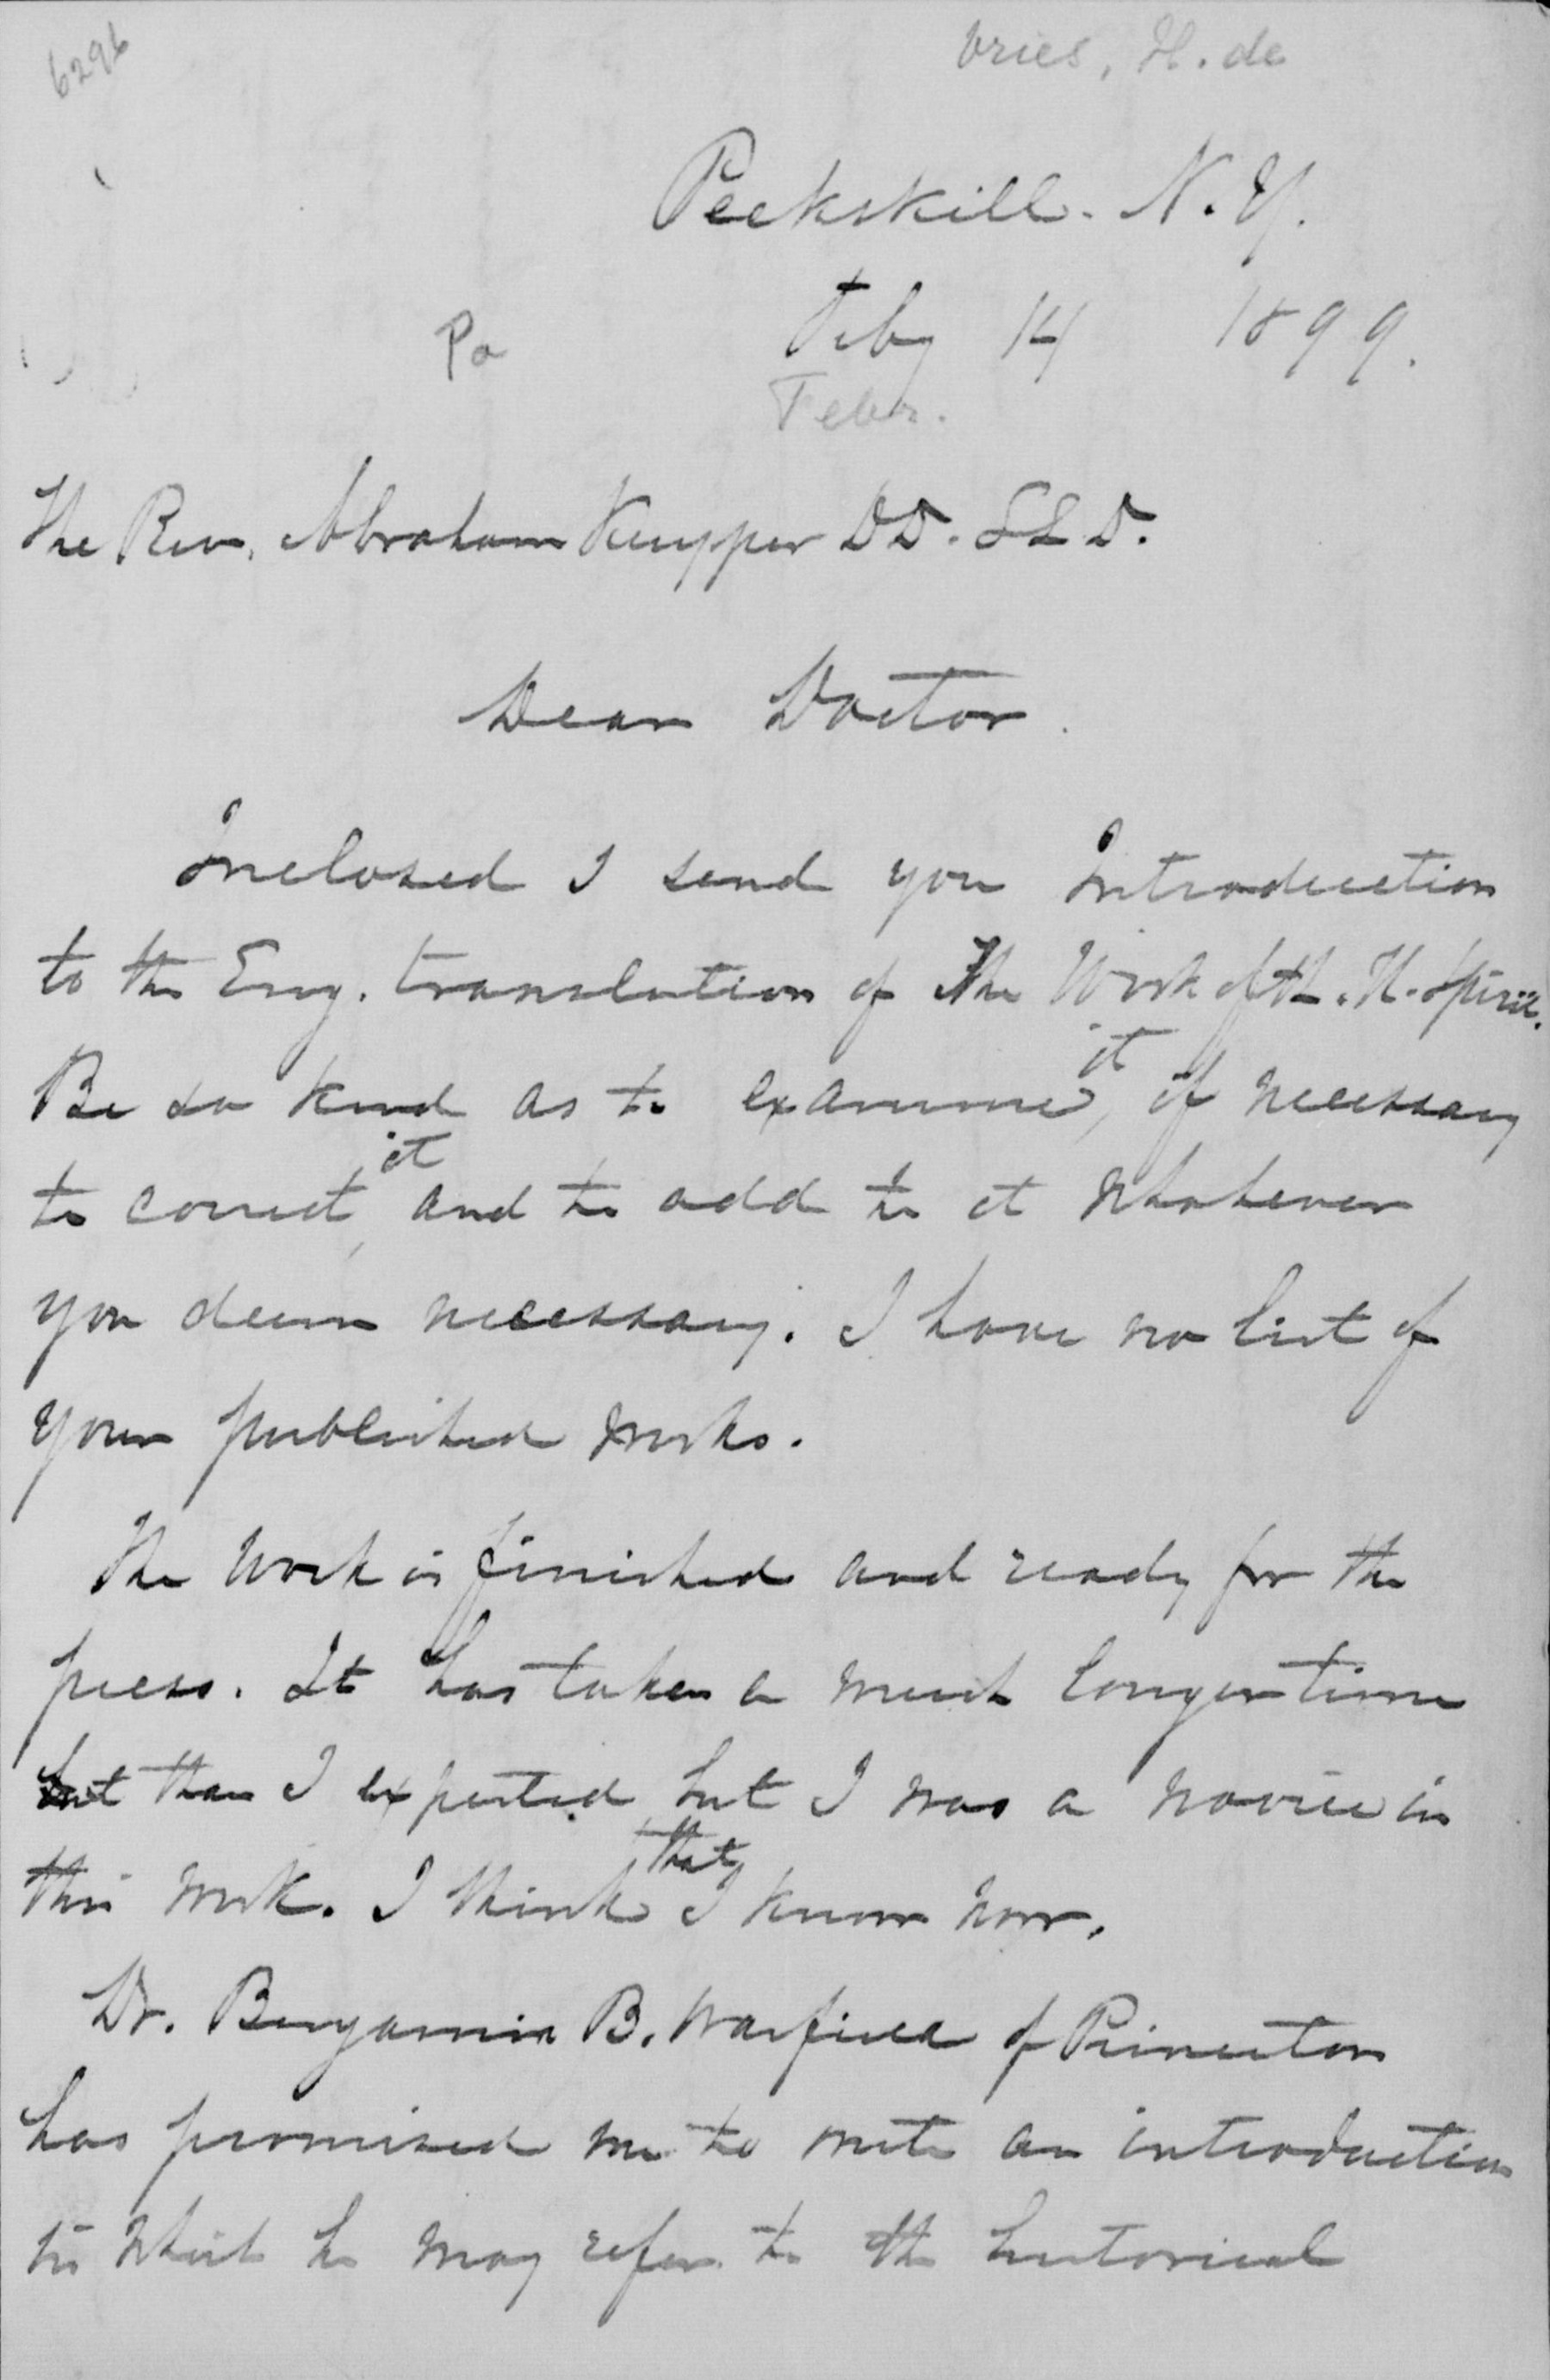 6296
Vries, H. de
Peekskill. N. Y.
Feby 14 1899.
Febr.
The Rev. Abraham Kuyper DD. LLD.
Dear Doctor.
Inclosed I send you Introduction
to the Eng. translation of The Work of th. H. Spirit.
Be so kind as to examine it, if necessary
to correct it, and to add to it whatever
you deem necessary. I have no list of
your published works.
The work is finished and ready for the
press. It has taken a much longer time
but than I expected but I was a novice in
this work. I think that I know now.
Dr. Benjamin B. Warfield of Princeton
has promised me to write an introduction
in which he may refer to the historical